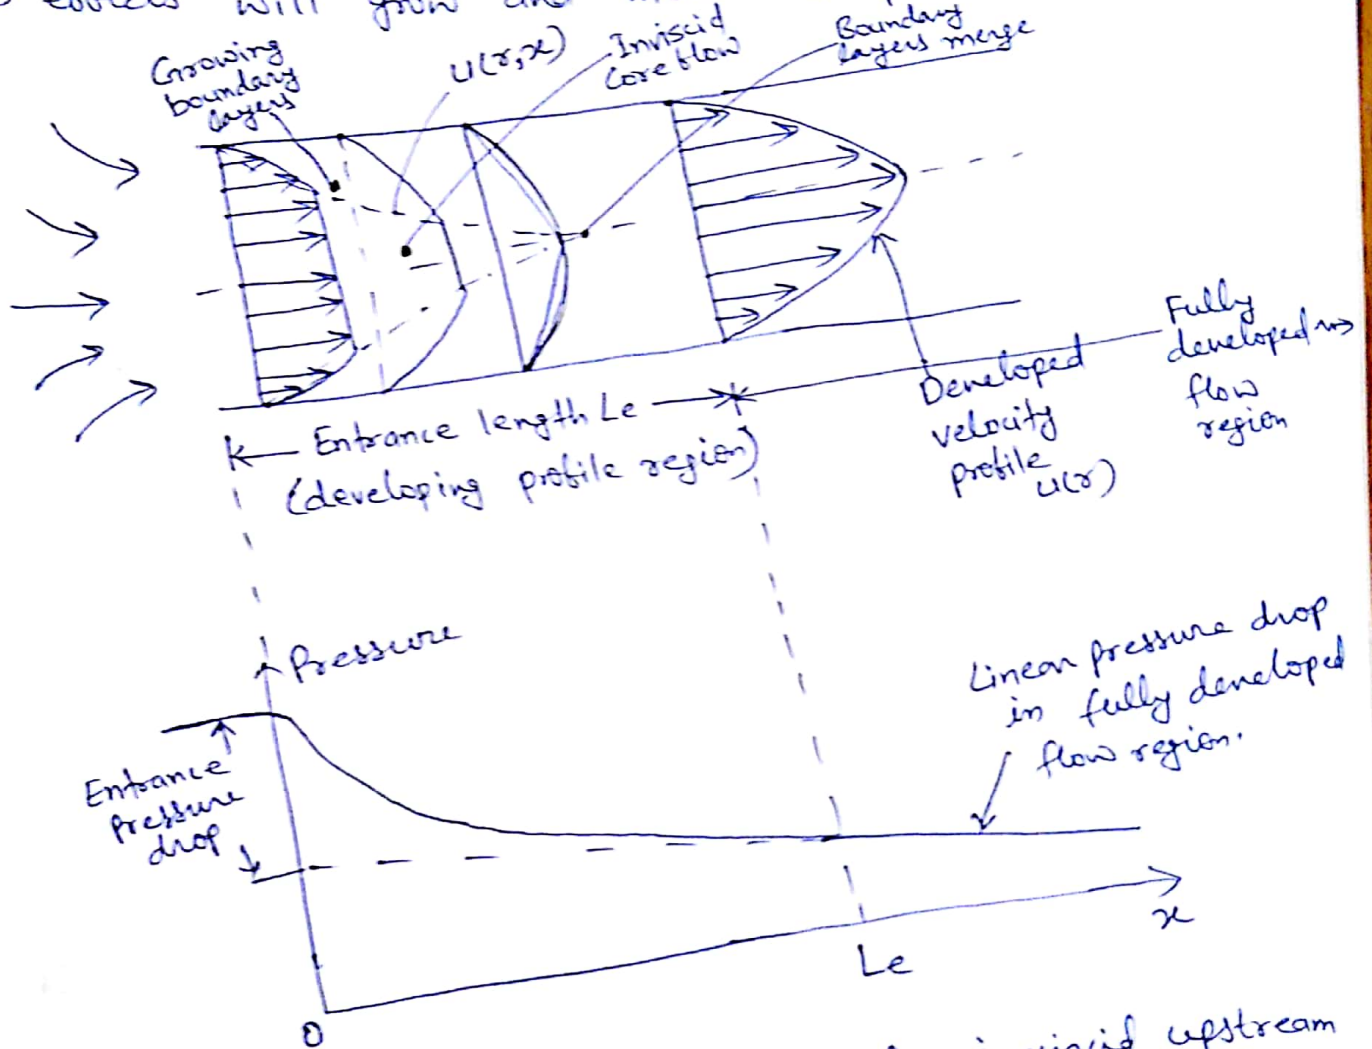 will grow and
Growing
boundary
layers
u(r,x)
Inviscid
core flow
Boundary
layers merge
Entrance length Le
(developing profile region)
Developed
velocity
profile
u(r)
Fully
developed
flow
region
Pressure
Entrance
pressure
drop
Linear pressure drop
in fully developed
flow region.
x
Le
0
upstream